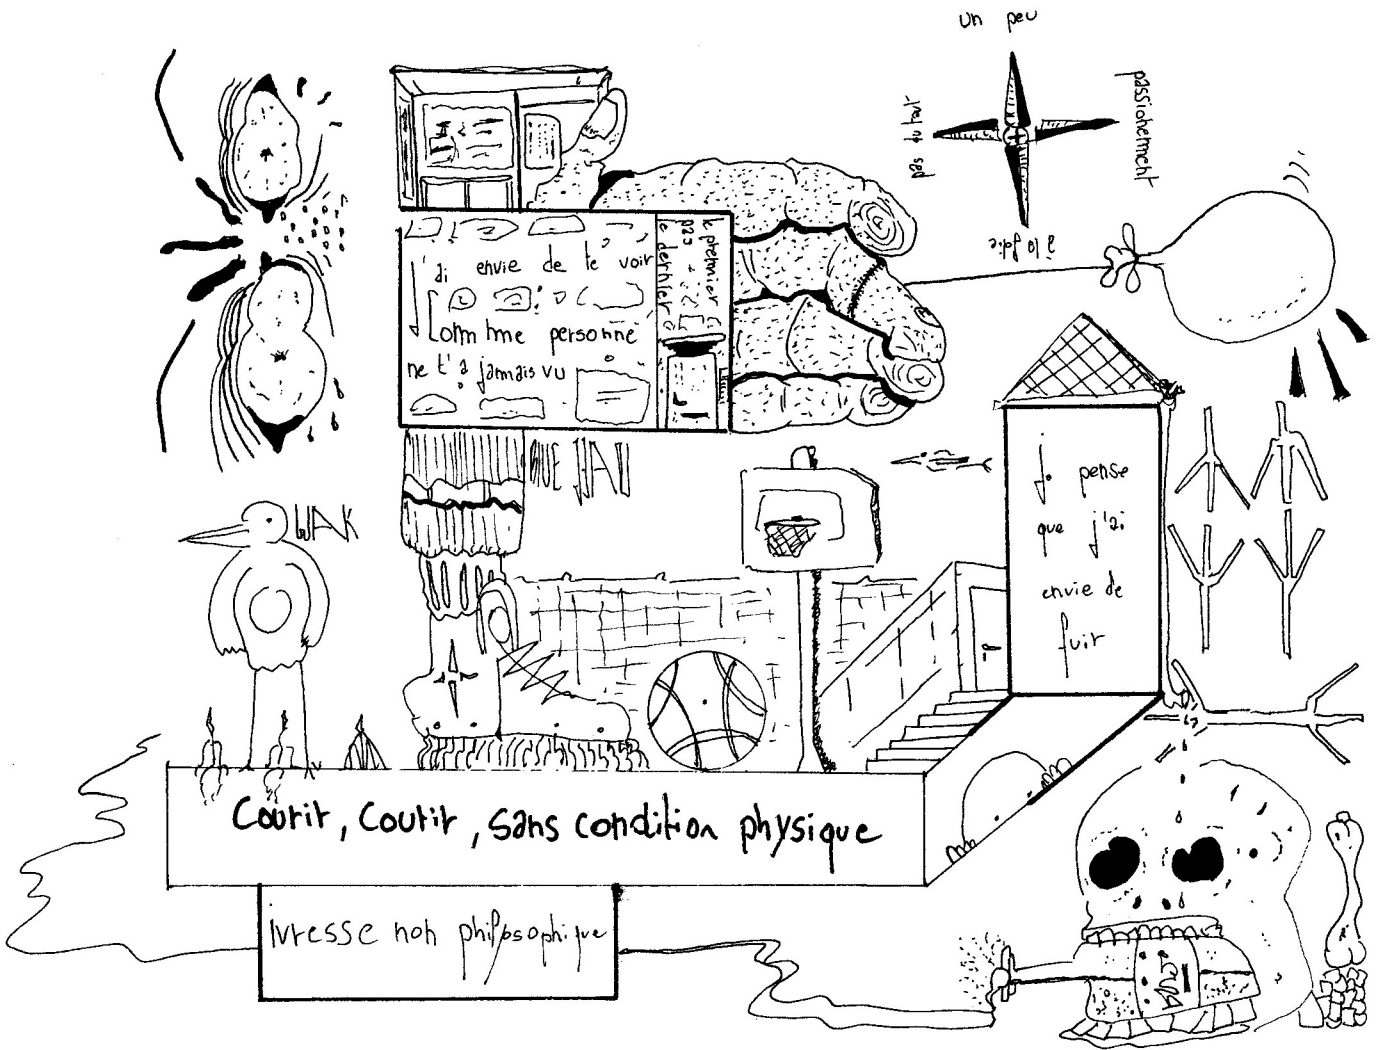 un peu
passionément
à la folie
pas du tout
J'ai envie de te voir
Comme personne
ne t'a jamais vu
le premier
pas
le dernier
WAK
je pense
que j'ai
envie de
fuir
Courir, Courir, sans condition physique
ivresse non philosophique